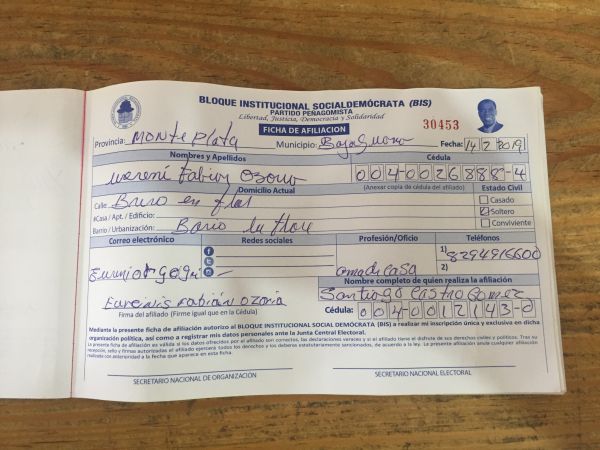 BLOQUE INSTITUCIONAL SOCIALDEMÓCRATA (BIS)
PARTIDO PEÑAGOMISTA
Libertad, Justicia, Democracia y Solidaridad
FICHA DE AFILIACION
30453
Provincia: Monte Plata Municipio: Fecha: 14/2/2019
Nombres y Apellidos Cédula
Fabian 004-0026888-4
Domicilio Actual (Anexar copia de cédula del afiliado) Estado Civil
Calle: en flor Casado
#Casa / Apt. / Edificio: Soltero
Barrio / Urbanización: Conviviente
Correo electrónico Redes sociales Profesión/Oficio Teléfonos
1) 8294916600
2)
ama de casa
Nombre completo de quien realiza la afiliación
Eurenis Fabian Ozoria Santiago Castro Gomez
Firma del afiliado (Firme igual que en la Cédula) Cédula: 004-0012143-0
Mediante la presente ficha de afiliación autorizo al BLOQUE INSTITUCIONAL SOCIAL DEMÓCRATA (BIS) a realizar mi inscripción única y exclusiva en dicha
organización política, así como a registrar mis datos personales ante la Junta Central Electoral.
SECRETARIO NACIONAL DE ORGANIZACIÓN SECRETARIO NACIONAL ELECTORAL